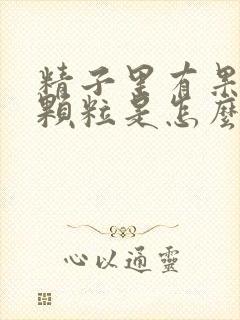 精子里有果
顆粒是怎麼
心以通靈